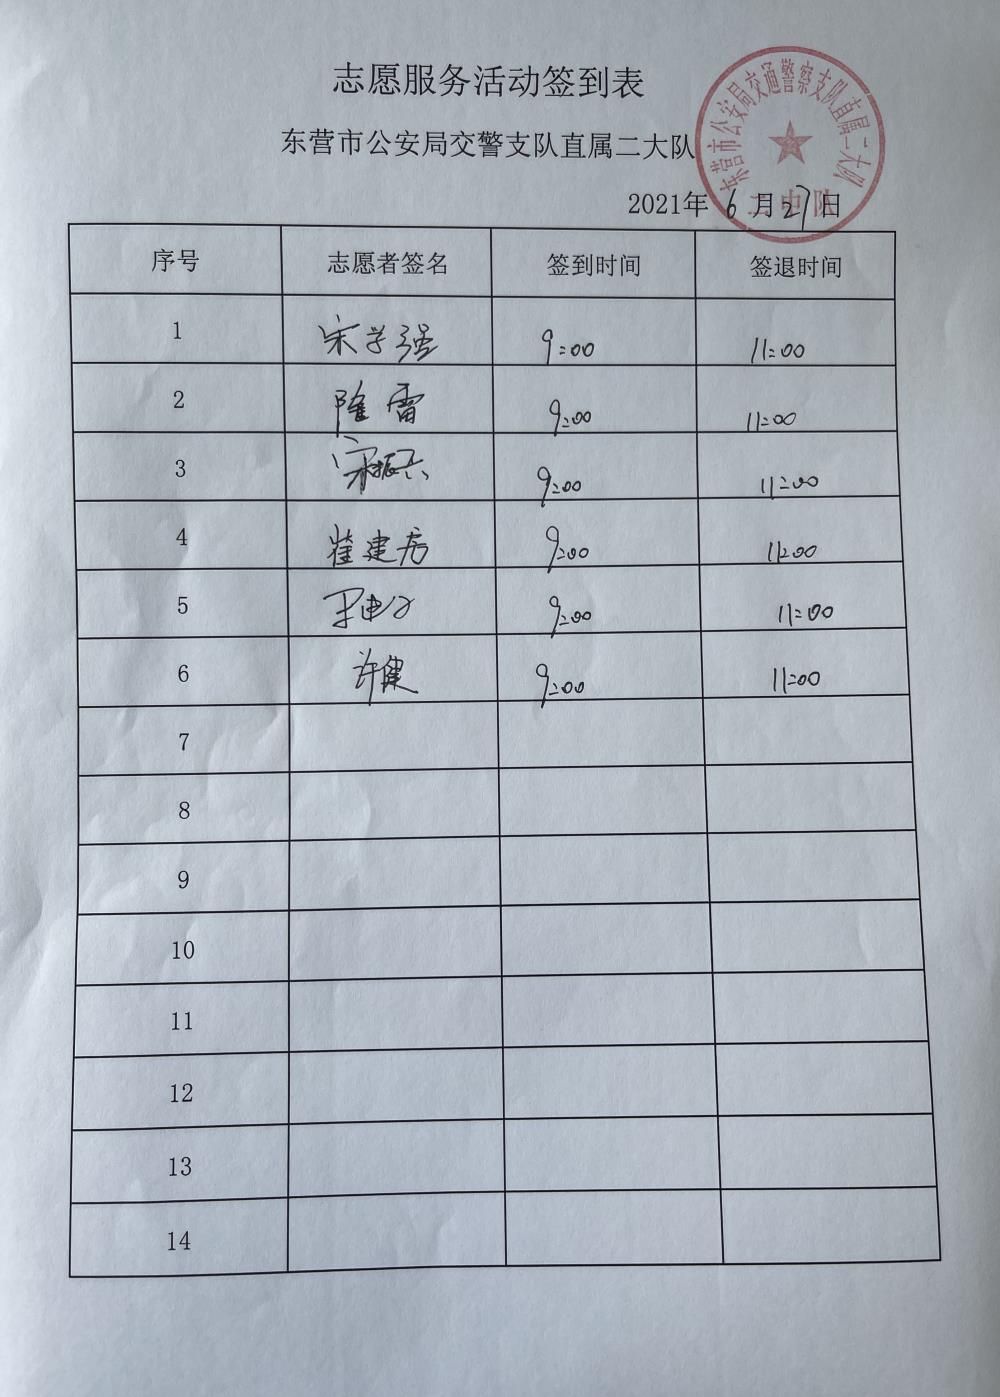 志愿服务活动签到表
东营市公安局交警支队直属二大队
东营市公安局交通警察支队直属二大队
二中队
2021年 6 月 27 日
序号 志愿者签名 签到时间 签退时间
1 宋学强 9:00 11:00
2 隆雷 9:00 11:00
3 宋振 9:00 11:00
4 崔建房 9:00 11:00
5 9:00 11:00
6 许健 9:00 11:00
7
8
9
10
11
12
13
14